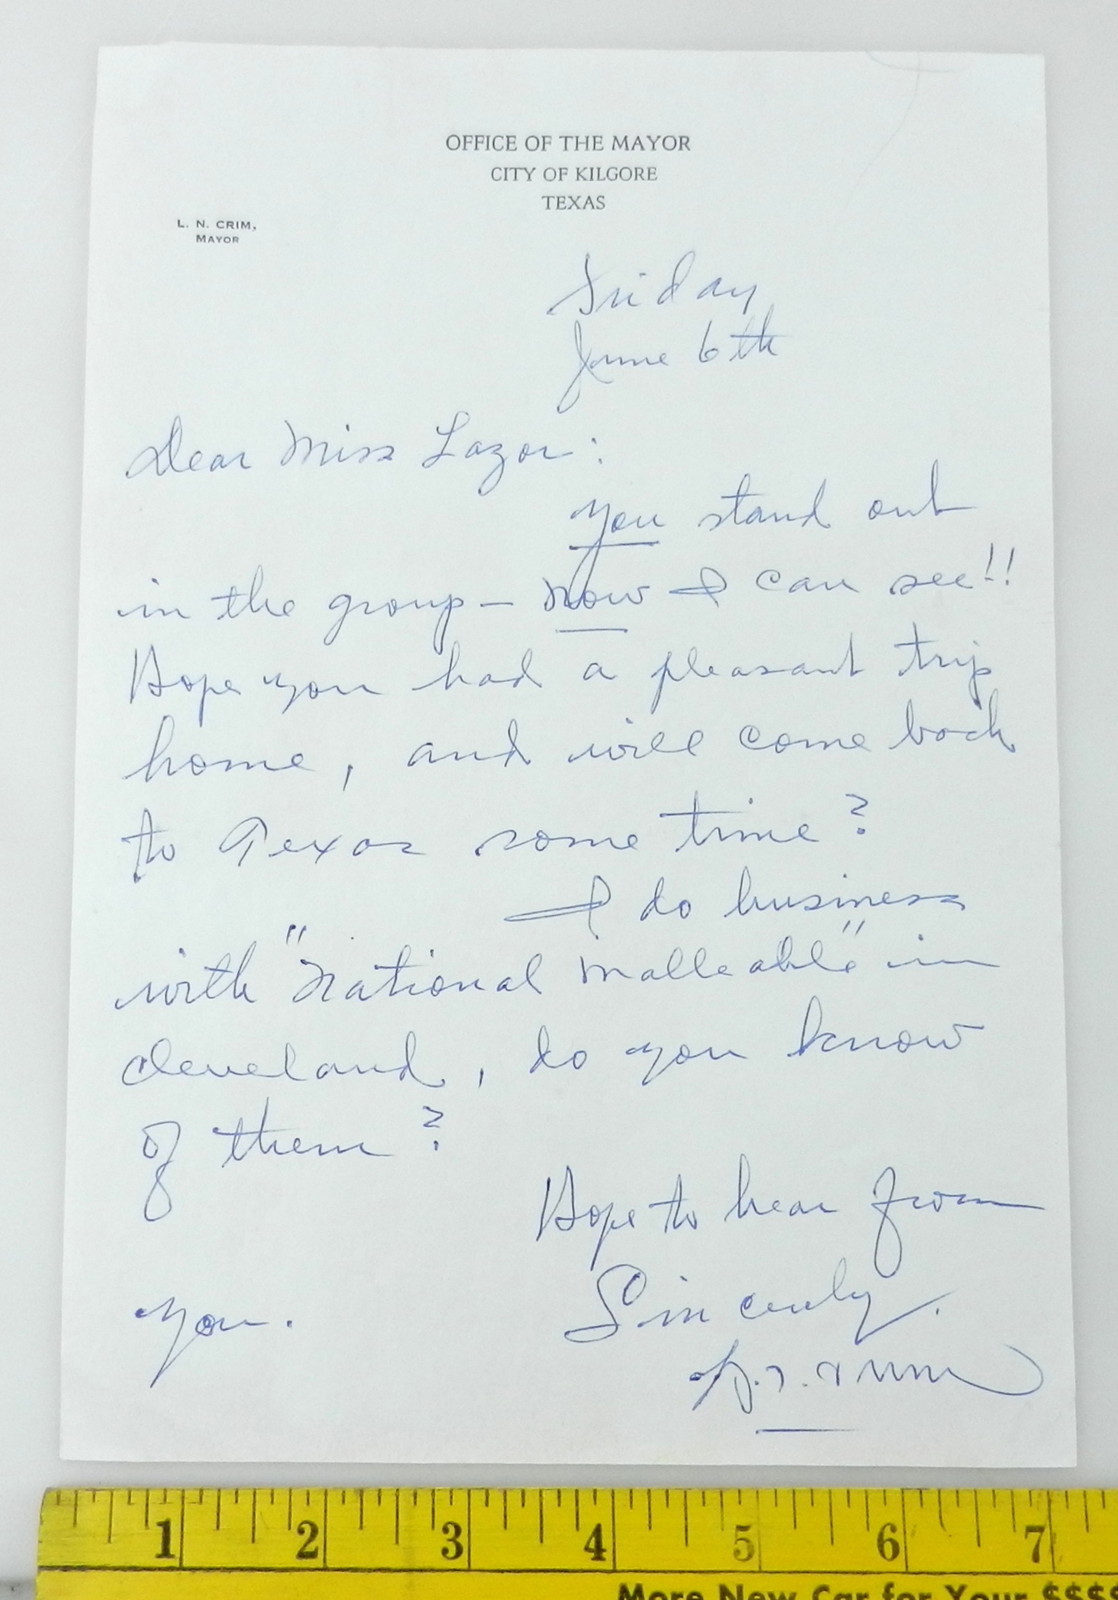 OFFICE OF THE MAYOR
CITY OF KILGORE
TEXAS
L. N. CRIM,
MAYOR
Friday
June 6th
Dear Miss Lazor:
You stand out
in the group - now I can see!!
Hope you had a pleasant trip
home, and will come back
to Texas some time?
I do business
with "National Malleable" in
Cleveland, do you know
of them?
Hope to hear from
you.
Sincerely,
1 2 3 4 5 6 7
More New Car for Your $$$$